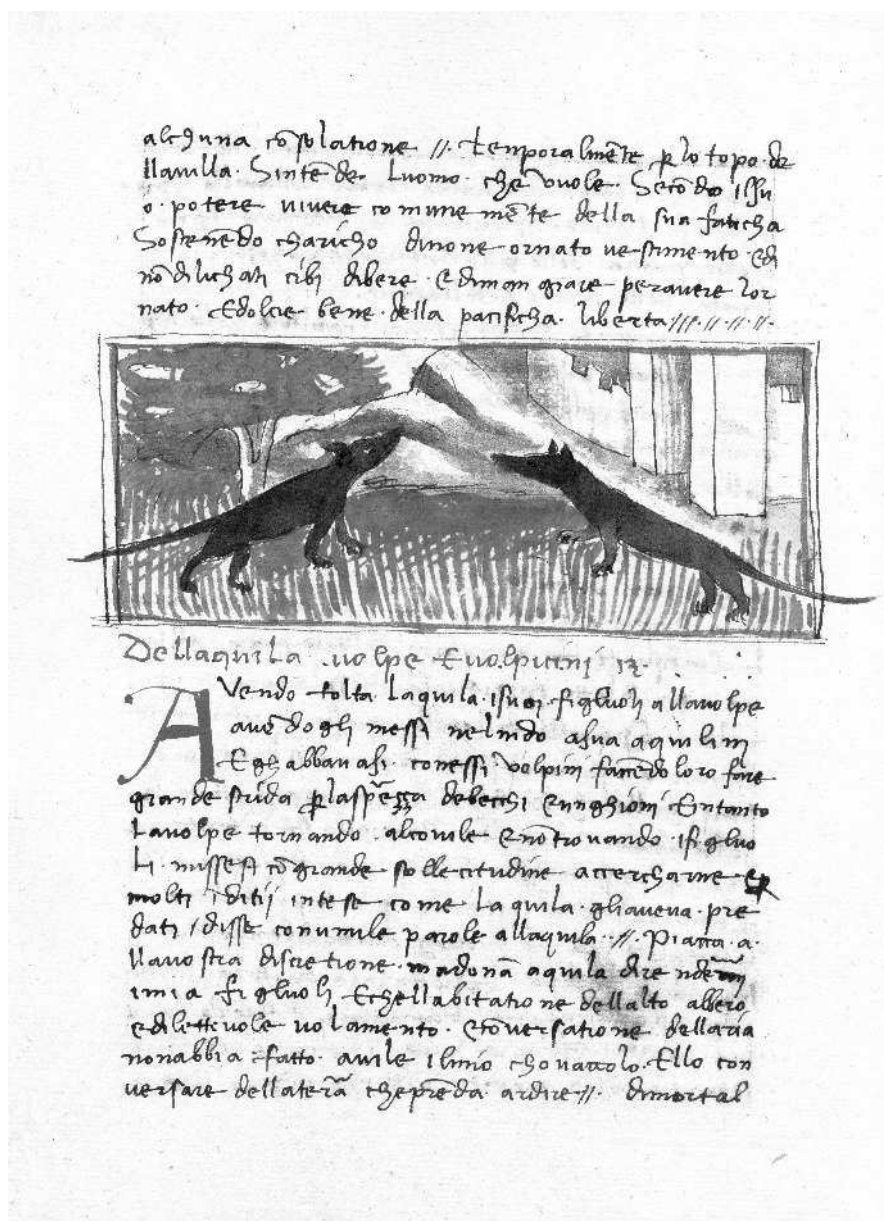 alchuna cōsolatione // Temporalmēte ꝑ lo topo de
llauilla. Sintēde. Luomo. che vuole. Secōdo ilsu
o. potere viuere comunemēte della sua faticha
Sostenēdo charicho dinone ornato vestimento. Edi
nō dilichati cibi dibere. E diman giare perauere lor
nato. Edolcie bene. della pacificha. liberta ///.//.//.//.
Dellaquila. uolpe Euolpicini 13.
AVendo tolta. Laquila. isuoi. figluoli allauolpe
auēdogli messi nelnido asua aquilini
Eghabbauasi. conessi volpini faccēdo loro fare
grande strida ꝑlaspēzza debecchi Eunghioni Entanto
Lauolpe tornando. alcouile Enōtrouando. ifigluo
li. missesi cōgrande sollecitudine accercharne Eꝑ
molti iditij intese come Laquila. gliaueua. pre
dati / disse conumile parole allaquila. //. Piaccia. a.
llauostra discretione. madonā aquila dire nder
imia figluoli, Echellabitatione dellalto albero
edilettiuole uolamento. Ecōversatione dellaria
nonabbia. fatto. auile ilmio chouacciolo. Ello con
uersare dellaterā cheprēda. ardire //. dimortal